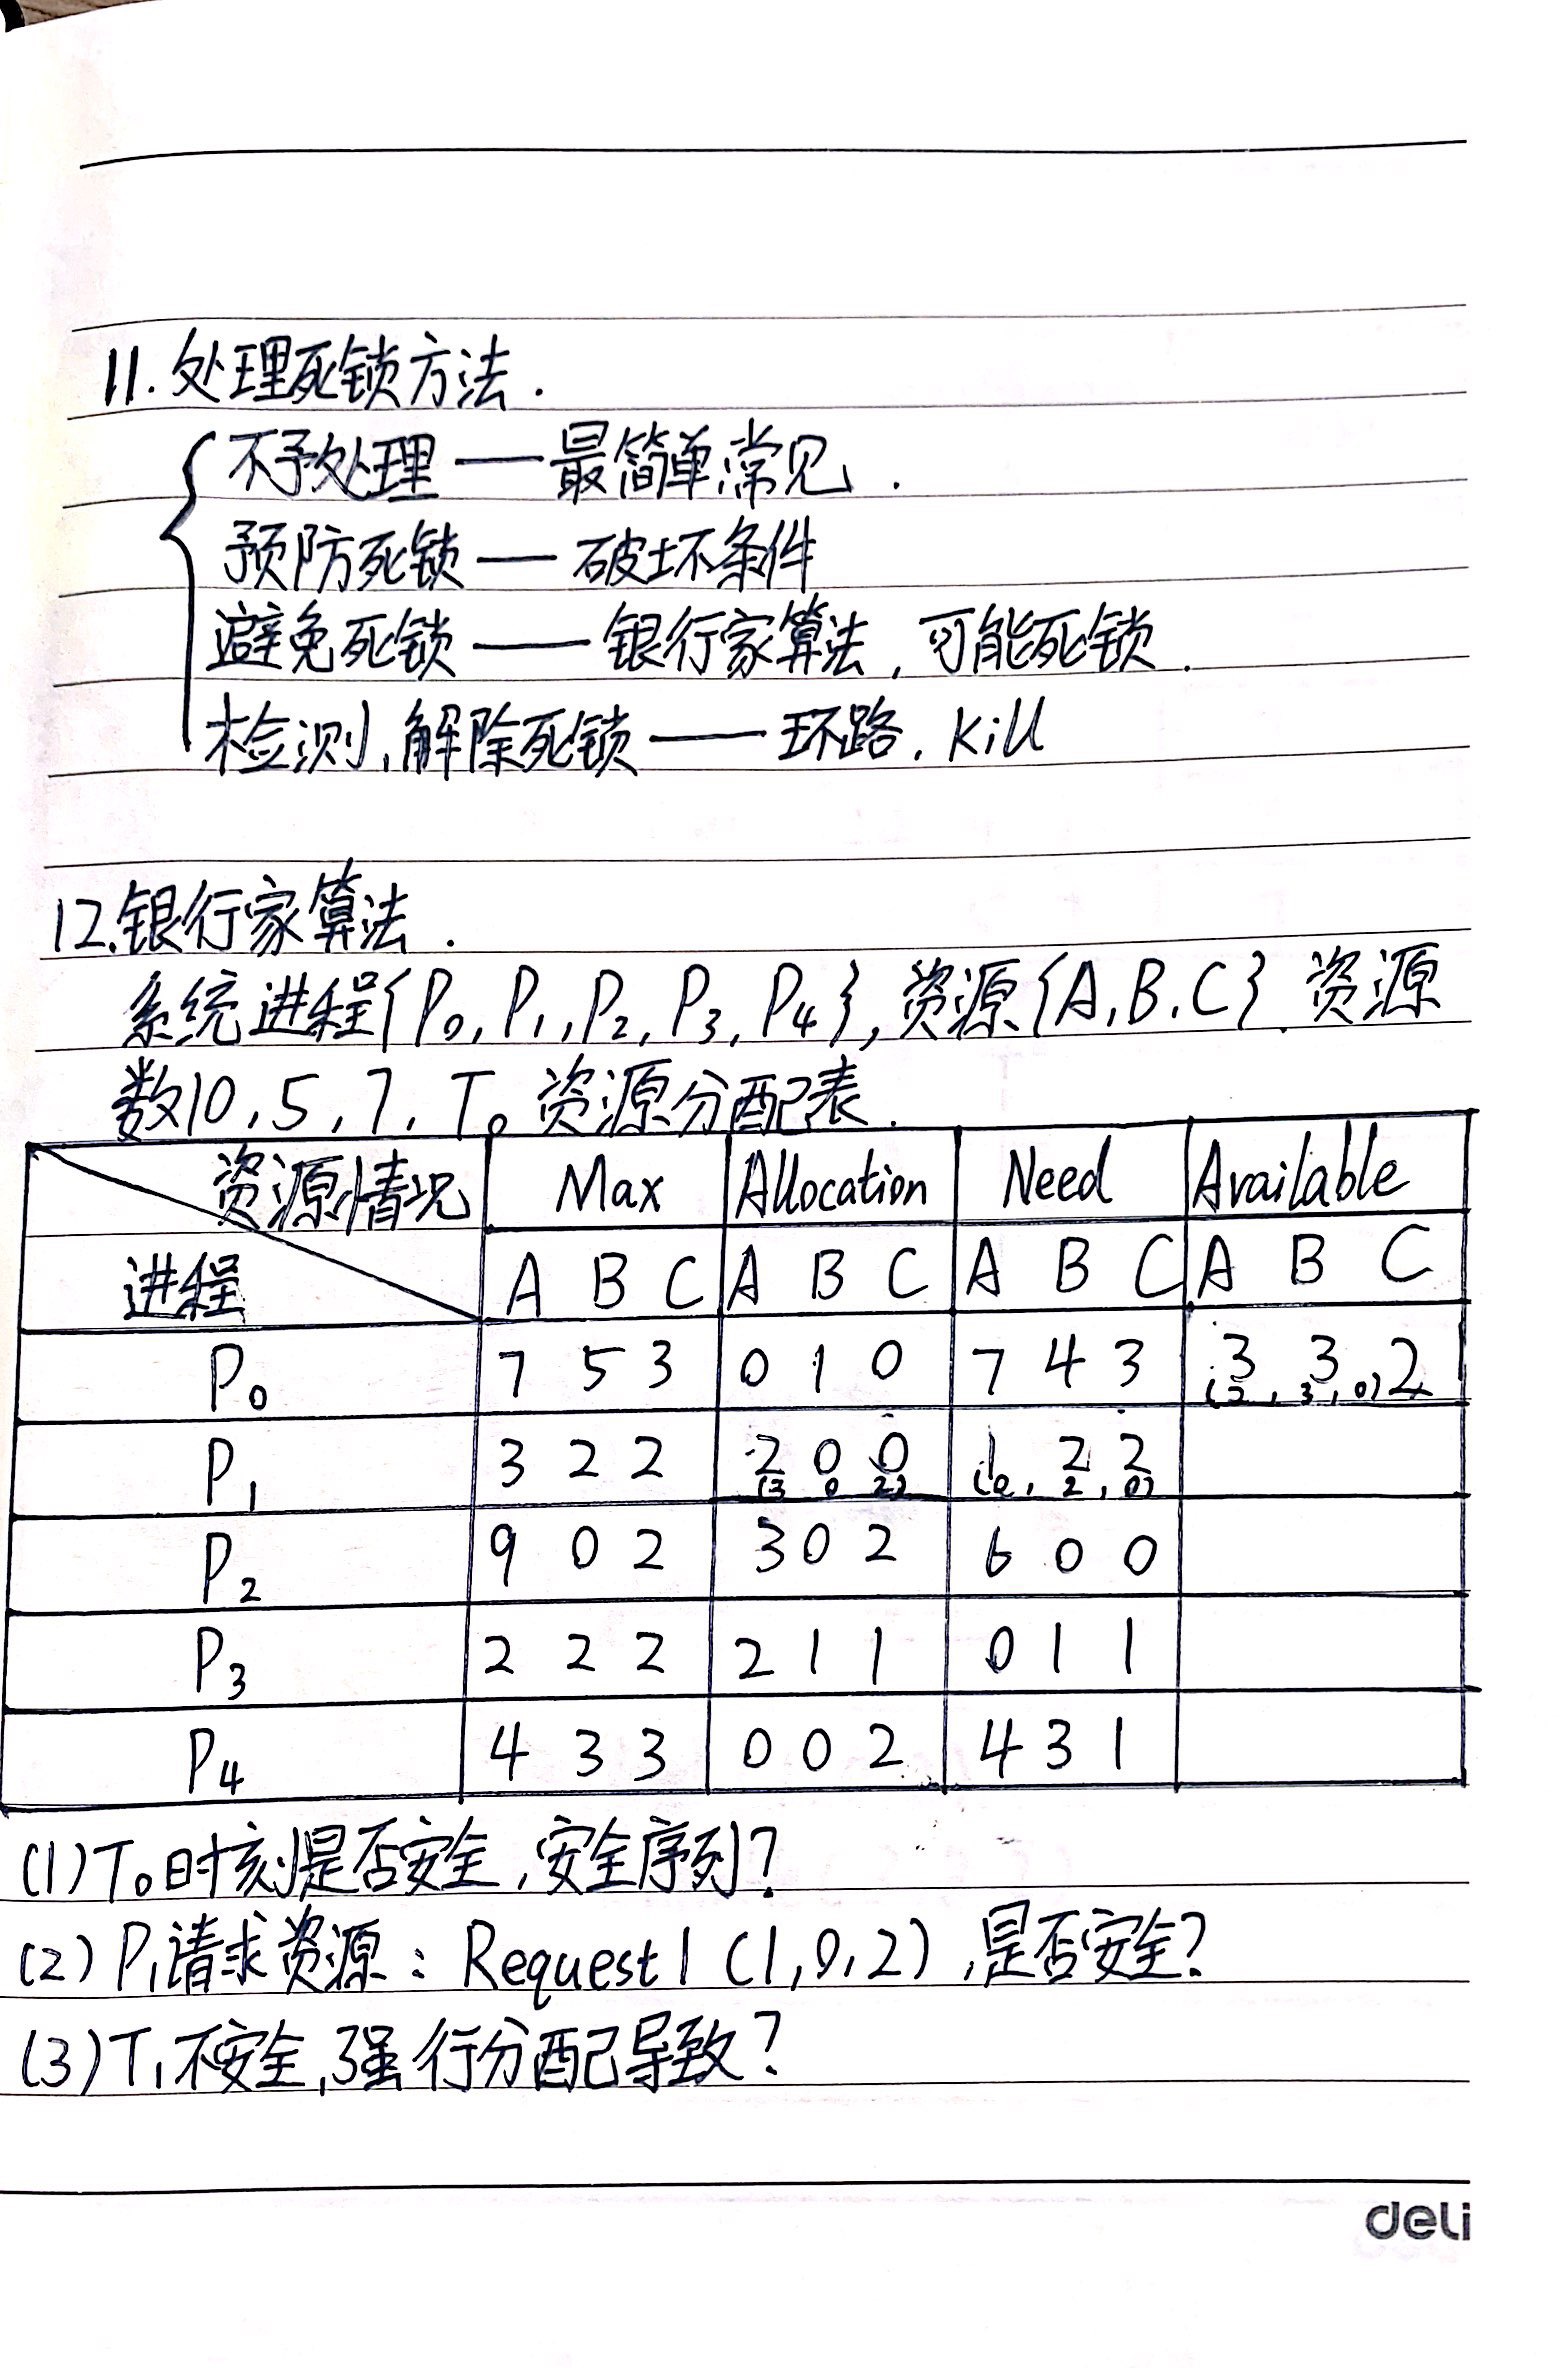 11.处理死锁方法.
不予处理——最简单常见.
预防死锁——破坏条件
避免死锁——银行家算法,可能死锁.
检测,解除死锁——环路.Kill
12.银行家算法.
系统进程{P₀,P₁,P₂,P₃,P₄},资源{A,B,C}.资源
数10,5,7,T₀资源分配表.
资源情况 Max Allocation Need Available
进程 A B C A B C A B C A B C
P₀ 7 5 3 0 1 0 7 4 3 3 3 2
(2,3,0)
P₁ 3 2 2 2 0 0 1 2 2
(3 0 2) (0,2,0)
P₂ 9 0 2 3 0 2 6 0 0
P₃ 2 2 2 2 1 1 0 1 1
P₄ 4 3 3 0 0 2 4 3 1
(1)T₀时刻是否安全,安全序列?
(2)P₁请求资源:Request1(1,0,2),是否安全?
(3)T₁不安全,强行分配导致?
deli